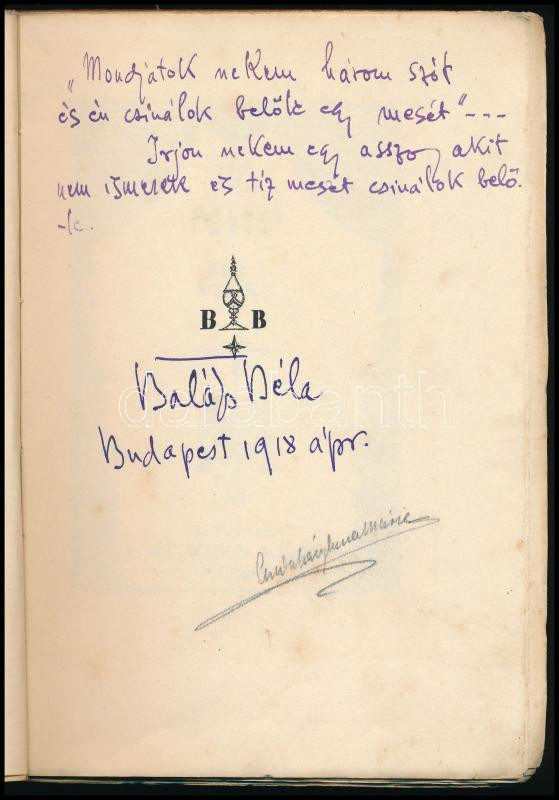 „Mondjátok nekem három szót
és én csinálok belőle egy mesét" – – –
Irjon nekem egy asszony akit
nem ismerek és tíz mesét csinálok belő-
-le.
B B
Balázs Béla
darabanth
Budapest 1918 ápr.